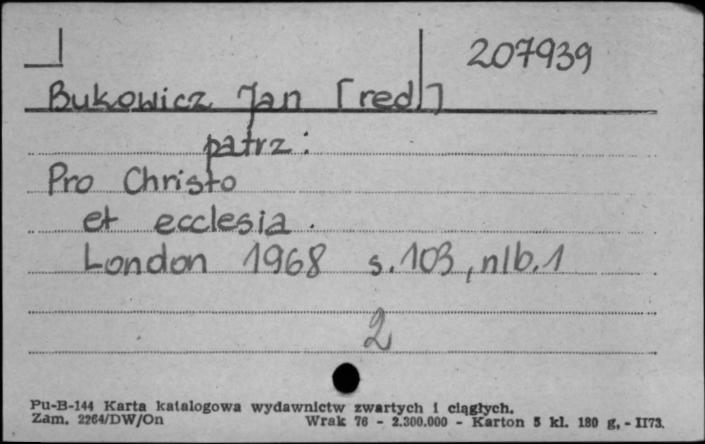 207939
Bukowicz Jan [red.]
patrz:
Pro Christo
et ecclesia.
London 1968 s.103, nlb.1
2
Pu-B-144 Karta katalogowa wydawnictw zwartych i ciągłych.
Zam. 2264/DW/On Wrak 76 - 2.300.000 - Karton 5 kl. 180 g, - II73.